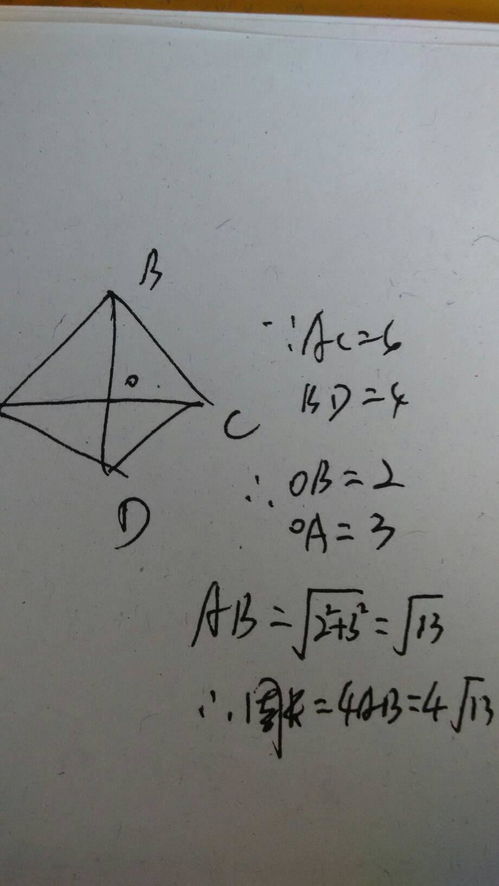 B
O
C
D
∵AC=6
BD=4
∴OB=2
OA=3
AB=√(2²+3²)=√13
∴周长=4AB=4√13